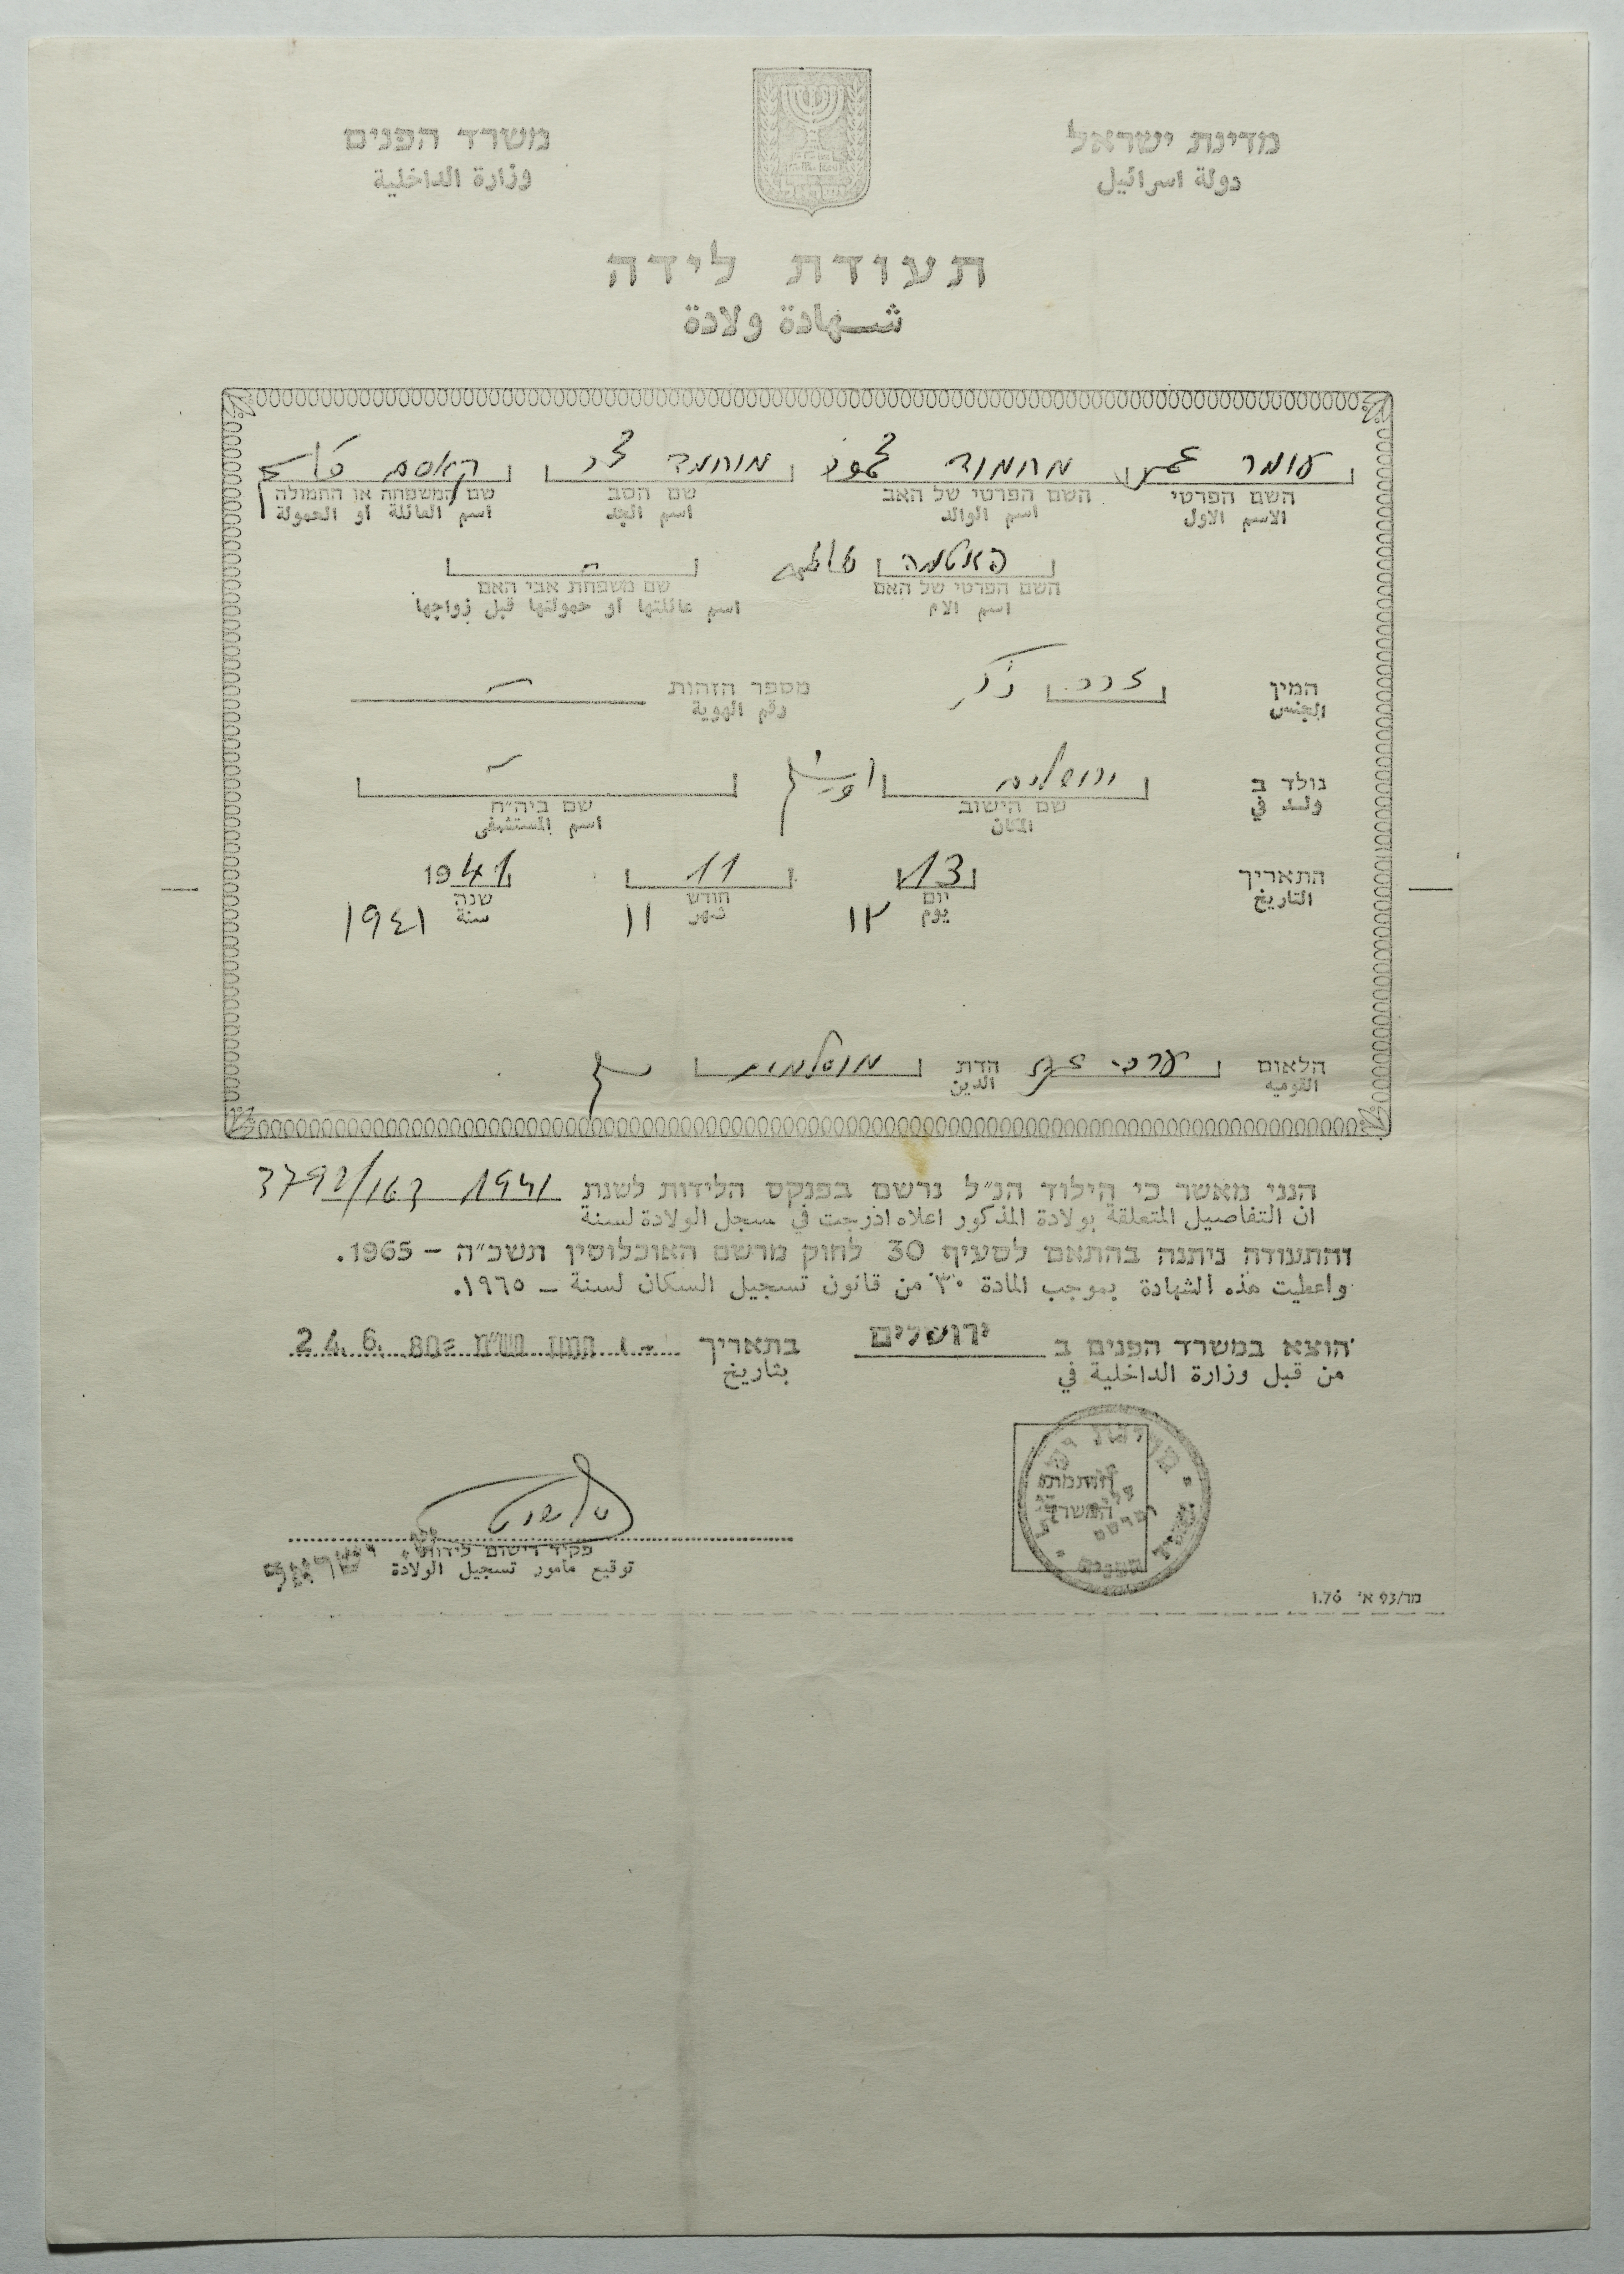 מדינת ישראל משרד הפנים
دولة اسرائيل وزارة الداخلية
תעודת לידה
شهادة ولادة
עומר عمر מחמוד محمود מוחמד محمد קאסם قاسم
השם הפרטי השם הפרטי של האב שם הסב שם המשפחה או החמולה
الاسم الاول اسم الوالد اسم الجد اسم العائلة او الحمولة
פאטמה فاطمه –
השם הפרטי של האם שם משפחת אבי האם
اسم الام اسم عائلتها او حمولتها قبل زواجها
המין זכר ذكر מספר הזהות –
الجنس رقم الهوية
נולד ב ירושלים –
ولد في שם הישוב שם ביה״ח
المكان اسم المستشفى
התאריך 13 11 1941
التاريخ יום חודש שנה
يوم ١٣ شهر ١١ سنة ١٩٤١
הלאום ערבי הדת מוסלמית
القوميه الدين
הנני מאשר כי הילוד הנ״ל נרשם בפנקס הלידות לשנת 1941
ان التفاصيل المتعلقة بولادة المذكور اعلاه ادرجت في سجل الولادة لسنة
והתעודה ניתנה בהתאם לסעיף 30 לחוק מרשם האוכלוסין תשכ״ה – 1965.
واعطيت هذه الشهادة بموجب المادة ٣٠ من قانون تسجيل السكان لسنة – ١٩٦٥.
הוצא במשרד הפנים ב ירושלים בתאריך
من قبل وزارة الداخلية في بتاريخ
חותמת
המשרד
פקיד רישום לידות
توقيع مامور تسجيل الولادة
מר/93 א׳ 1.76